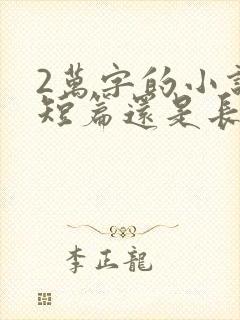 2萬字的小說
短篇還是長
李正龍